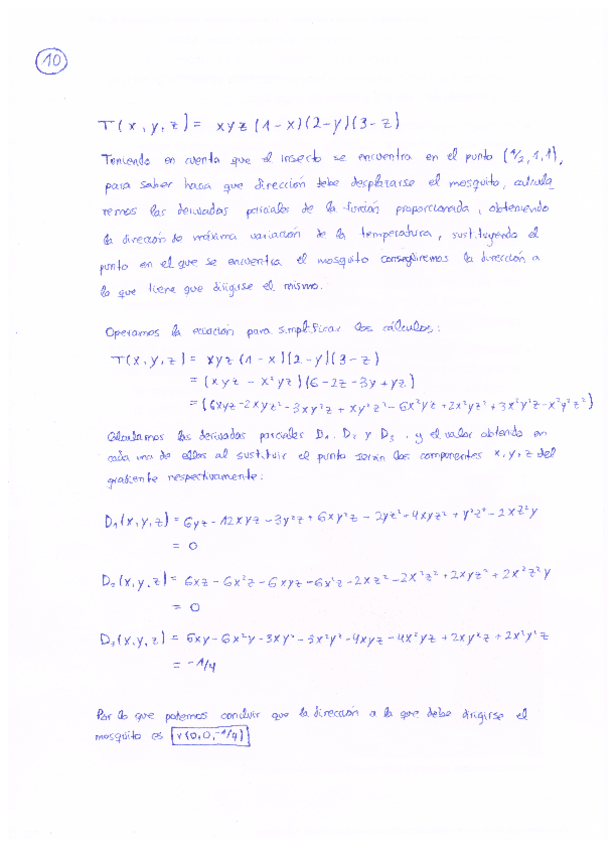 10
T(x,y,z) = xyz(1-x)(2-y)(3-z)
Teniendo en cuenta que el insecto se encuentra en el punto (1/2,1,1),
para saber hacia que dirección debe desplazarse el mosquito, calcula
remos las derivadas parciales de la función proporcionada, obteniendo
la dirección de máxima variación de la temperatura, sustituyendo el
punto en el que se encuentra el mosquito conseguiremos la dirección a
la que tiene que dirigirse el mismo.
Operamos la ecuación para simplificar los cálculos:
T(x,y,z) = xyz(1-x)(2-y)(3-z)
= (xyz - x²yz)(6-2z-3y+yz)
= (6xyz-2xyz²-3xy²z+xy²z²-6x²yz+2x²yz²+3x²y²z-x²y²z²)
Calculamos las derivadas parciales D₁, D₂ y D₃, y el valor obtenido en
cada una de ellas al sustituir el punto serán las componentes x,y,z del
gradiente respectivamente:
D₁(x,y,z) = 6yz-12xyz-3y²z+6xy²z-2yz²+4xyz²+y²z²-2xz²y
= 0
D₂(x,y,z) = 6xz-6x²z-6xyz+6x²z-2xz²-2x²z²+2xyz²+2x²z²y
= 0
D₃(x,y,z) = 6xy-6x²y-3xy²-3x²y²-4xyz-4x²yz+2xy²z+2x²y²z
= -1/4
Por lo que podemos concluir que la dirección a la que debe dirigirse el
mosquito es v(0,0,-1/4)